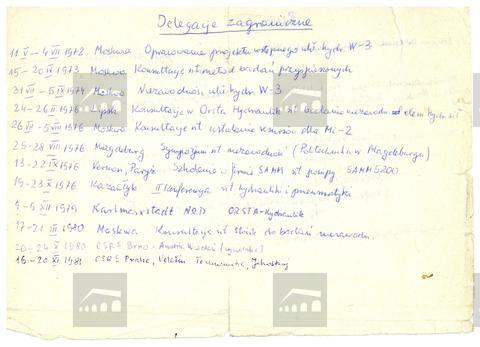 Delegacje zagraniczne
11 V – 4 VII 1972 Moskwa Opracowanie projektu wstępnego ukł. hydr. W-3
15–20 IV 1973 Moskwa Konsultacje nt metod badań przyspieszonych
31 VII – 5 1974 Moskwa Niezawodność ukł. hydr. W-3
24–26 1976 Lipsk Konsultacje w Orsta Hydraulik nt badania niezawodn. elem. hydr.
26 VII – 5 VIII 1976 Moskwa Konsultacje nt ustalenia resursów dla Mi-2
25–28 VIII 1976 Magdeburg Sympozjum nt niezawodności (Politechnika w Magdeburgu)
13–22 IX 1976 Vernon, Paryż Szkolenie w firmie SAMM nt pompy SAMM 5200
19–23 X 1976 Kazanłyk II Konferencja nt hydrauliki i pneumatyki
XII 1979 Karlmarxstadt NRD ORSTA-Hydraulik
17–21 1980 Moskwa Konsultacje nt stoisk do badań niezawodn.
20–24 X 1980 CSRS Brno - Austria Wiedeń (wycieczka)
16–20 XI 1981 CSRS Praha, Jihostroj